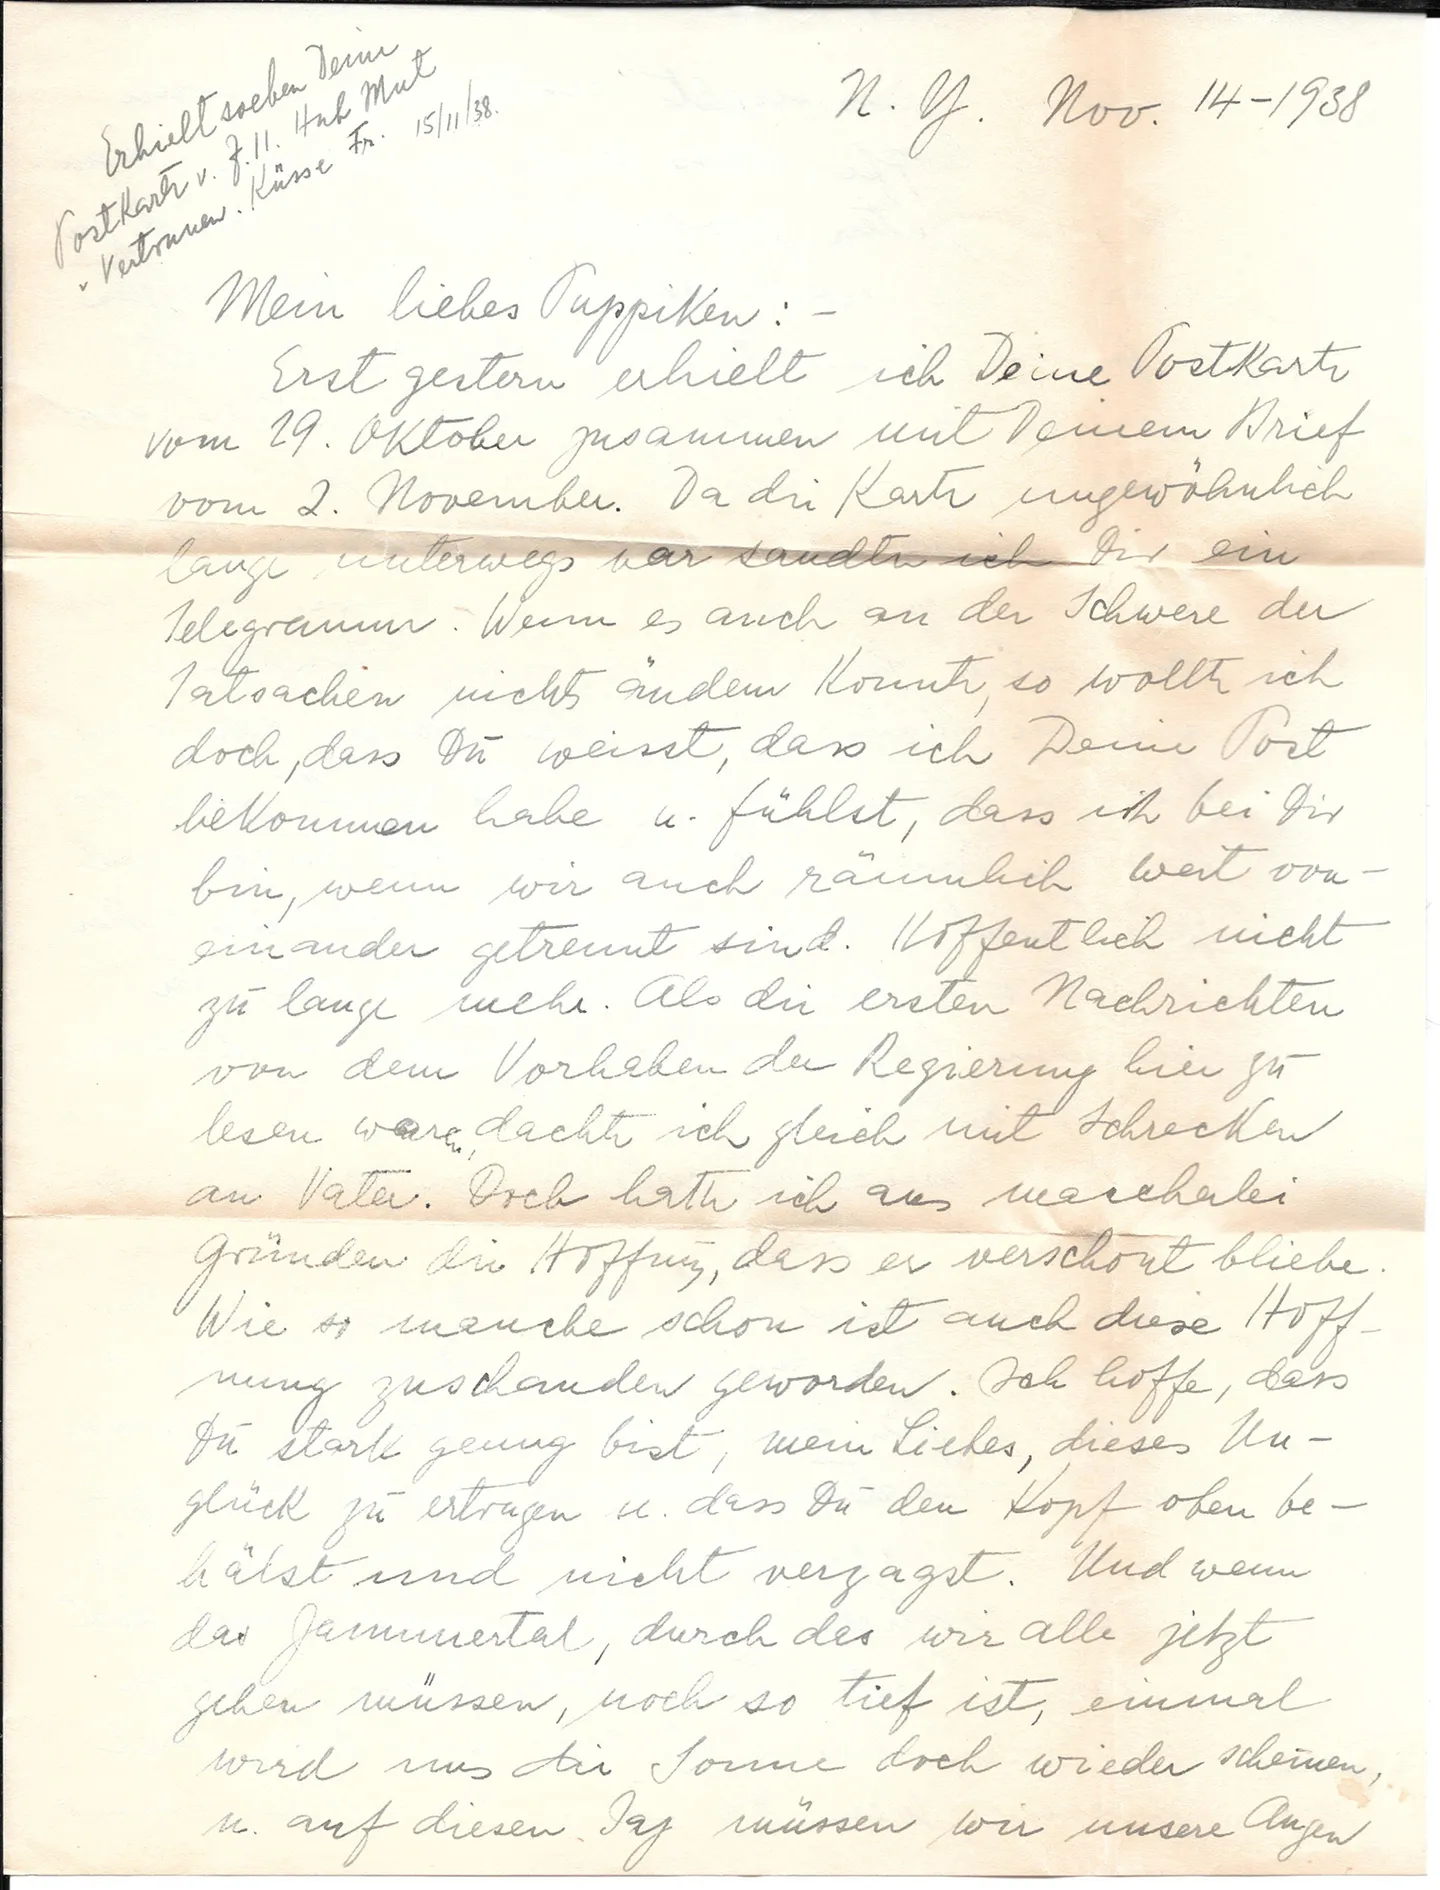 Erhielt soeben Deine
Postkarte v. 7.11. Hab Mut
u. Vertrauen. Küsse Fr. 15/11/38.
N. Y. Nov. 14-1938
Mein liebes Puppiken: -
Erst gestern erhielt ich Deine Postkarte
vom 29. Oktober zusammen mit Deinem Brief
vom 2. November. Da die Karte ungewöhnlich
lange unterwegs war sandte ich Dir ein
Telegramm. Wenn es auch an der Schwere der
Tatsachen nichts ändern konnte, so wollte ich
doch, dass Du weisst, dass ich Deine Post
bekommen habe u. fühlst, dass ich bei Dir
bin, wenn wir auch räumlich weit von-
einander getrennt sind. Hoffentlich nicht
zu lange mehr. Als die ersten Nachrichten
von dem Vorhaben der Regierung hier zu
lesen waren, dachte ich gleich mit Schrecken
an Vater. Doch hatte ich aus mancherlei
Gründen die Hoffnung, dass er verschont bliebe.
Wie so manche schon ist auch diese Hoff-
nung zuschanden geworden. Ich hoffe, dass
Du stark genug bist, mein Liebes, dieses Un-
glück zu ertragen u. dass Du den Kopf oben be-
hälst und nicht verzagst. Und wenn
das Jammertal, durch das wir alle jetzt
gehen müssen, noch so tief ist, einmal
wird uns die Sonne doch wieder scheinen,
u. auf diesen Tag müssen wir unsere Augen